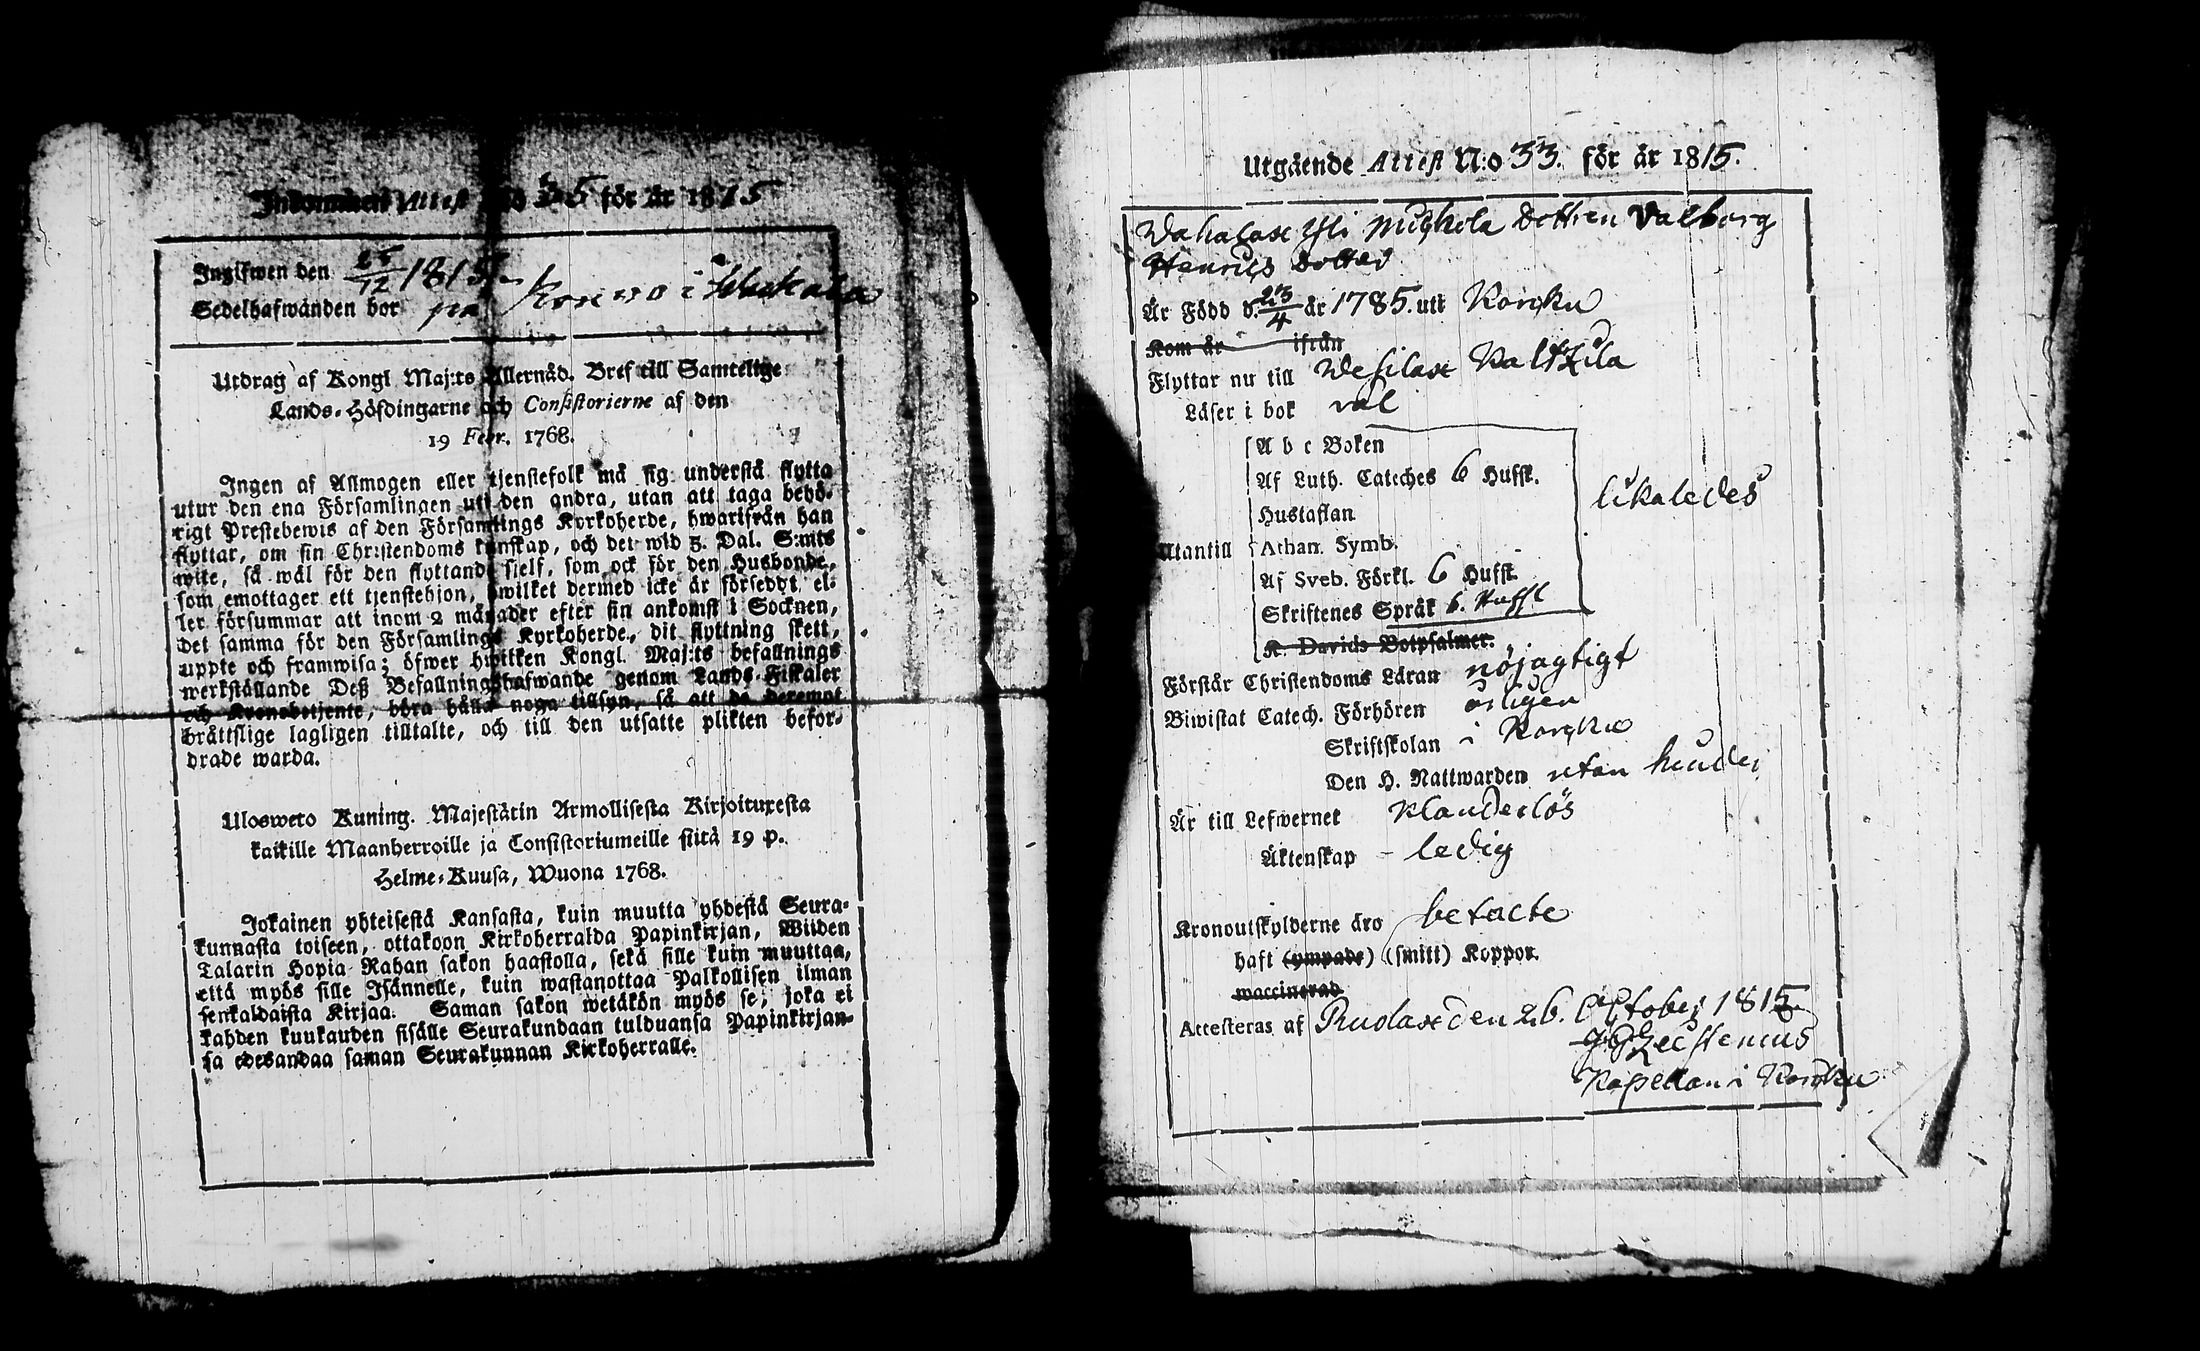 Inkommen Attest N:o 35 för år 1815
Ingifwen den 26/12 1815
Sedelhafwanden bor på
Utdrag af Kongl. Maj:ts Allernåd. Bref till Samtelige
Lands-Höfdingarne och Consistorierne af den
19 Febr. 1768.
Ingen af Allmogen eller tjenstefolk må sig understå flytta
utur den ena Församlingen uti den andra, utan att taga behö-
rigt Prestebewis af den Församlings Kyrkoherde, hwarifrån han
flyttar, om sin Christendoms kunskap, och det wid 5. Dal. S:mts
wite, så wäl för den flyttande sjelf, som ock för den Husbonde,
som emottager ett tjenstehjon, hwilket dermed icke är försedt el-
ler försummar att inom 2 månader efter sin ankomst i Socknen,
det samma för den Församlings Kyrkoherde, dit flyttning skett,
uppte och framwisa; öfwer hwilken Kongl. Maj:ts befallnings
werkställande Deß Befallningshafwande genom Lands-Fiskaler
och Kronobetjente, böra hålla noga tillsyn, så att de deremot
brättslige lagligen tilltalte, och till den utsatte plikten befor-
drade warda.
Ulosweto Kuning. Majestätin Armollisesta Kirjoituxesta
kaikille Maanherroille ja Consistoriumeille siitä 19 p.
Helme-Kuusa, Wuona 1768.
Jokainen yhteisestä Kansasta, kuin muutta yhdestä Seura-
kunnasta toiseen, ottakoon Kirkoherralda Papinkirjan, Wiiden
Talarin Hopia Rahan sakon haastolla, sekä sille kuin muuttaa,
että myös sille Isännelle, kuin wastanottaa Palkollisen ilman
senkaldaista Kirjaa. Saman sakon wetäkön myös se, joka ei
kahden kuukauden sisälle Seurakundaan tulduansa Papinkirjan-
sa edesandaa saman Seurakunnan Kirkoherralle.
Utgående Attest N:o 33. för år 1815.
Wahalax Yli Mickola Dottren Valborg
Henrics dotter
Är Född d. 23/4 år 1785. uti Korpku
Kom år ifrån
Flyttar nu till Wesilax
Läser i bok väl
A b c Boken
Af Luth. Cateches 6 Hufst.
Hustaflan
Utantill Athan. Symb.
Af Sveb. Förkl. 6 Hufst.
Skriftenes Språk 6. Hufst
K. Davids Botpsalmer.
likaledes
Förstår Christendoms Läran nöjagtigt
Biwistat Catech. Förhören årligen
Skriftskolan i Korpku
Den H. Nattwarden utan hinder
Är till Lefwernet klanderlös
Äktenskap - ledig
Kronoutskylderne äro betalte
haft (ympade) (smitt) Koppor.
waccinerad
Attesteras af Ruolax den 26. October 1815
Kapellan i Korpku